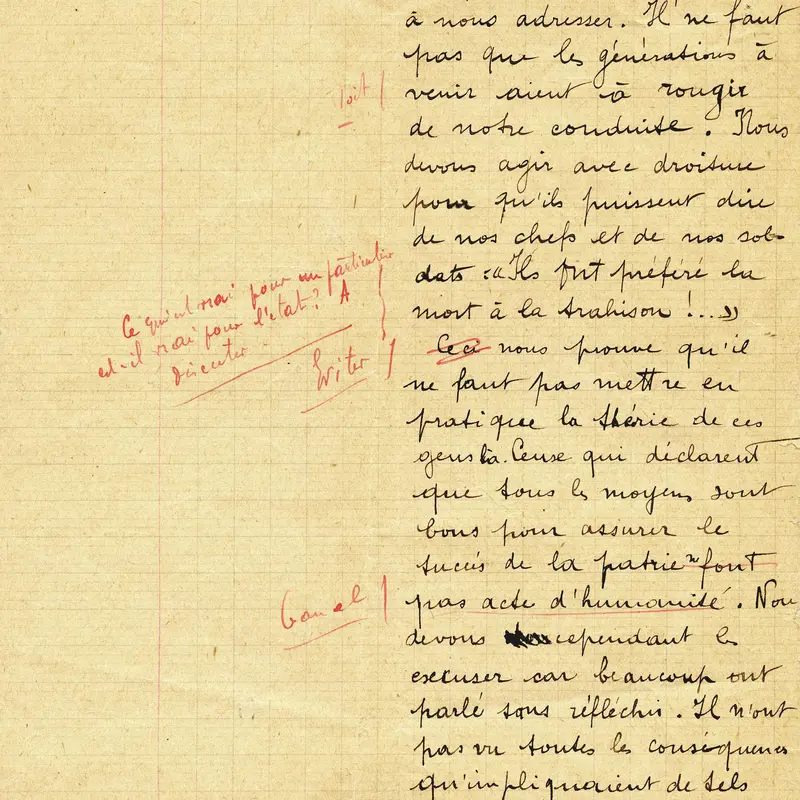 à nous adresser. Il ne faut
pas que les générations à
venir aient à rougir
de notre conduite. Nous
devons agir avec droiture
pour qu'ils puissent dire
de nos chefs et de nos sol-
dats : "Ils ont préféré la
mort à la trahison !..."
Ceci nous prouve qu'il
ne faut pas mettre en
pratique la thérie de ces
gens là. Ceux qui déclarent
que tous les moyens sont
bons pour assurer le
succès de la patrie n' font
pas acte d'humanité. Nou
devons cependant les
excuser car beaucoup ont
parlé sans réfléchir. Il n'ont
pas vu toutes les conséquences
qu'impliquaient de tels
Ce qui est vrai pour un particulier
est-il vrai pour l'état? A
discuter.
Eviter
Banal